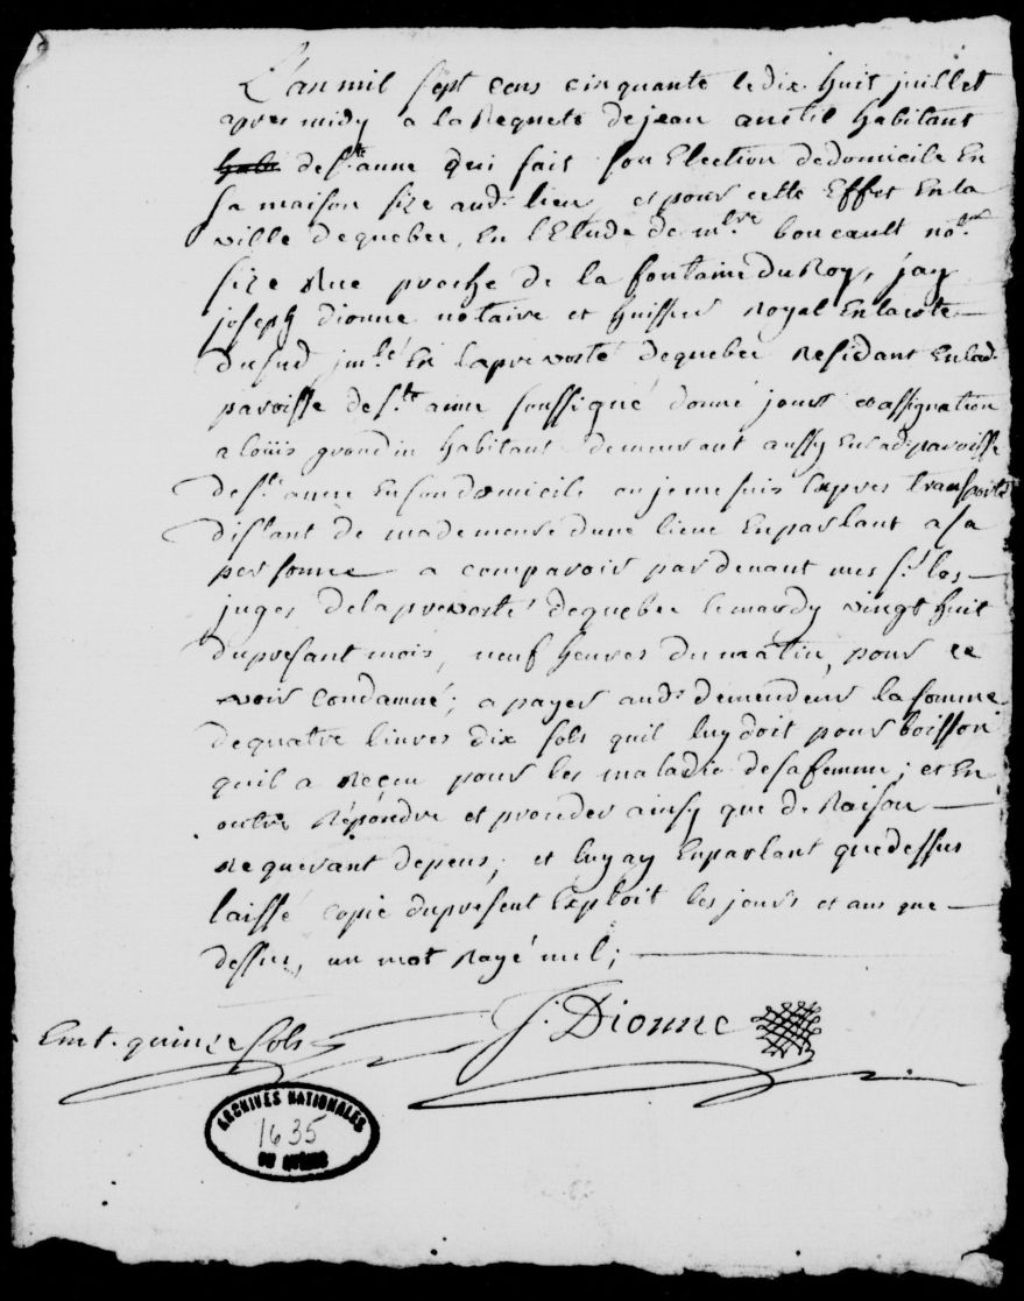 L'an mil sept cens cinquante le dix huit juillet
apres midy a la Requete de jean anctil habitant
habi de ste anne qui fait son Election de domicile En
sa maison size aud. lieu, et pour cette Effet En la
ville de quebec, En l'Etude de me boucault nore
size Rue proche de la fontaine du Roy, jay
joseph dionne notaire et huissier Royal En la cote
du sud jmle En la prevosté de quebec Residant En lad.
paroisse de ste anne soussigné donné jour et assignation
a loüis grondin habitant demeurant aussy En lad. paroisse
de ste anne En son domicile ou je me suis Expres transporté
distant de ma demeure dune lieue En parlant a sa
personne a comparoir par devant mes srs les
juges de la prevosté de quebec le mardy vingt huit
du presant mois, neuf heures du matin, pour ce
voir Condamné; a payer aud. demendeur la somme
de quatre livres dix sols quil luy doit pour boisson
quil a Reçeu pour les maladie de sa femme; et En
outre Répondre et proceder ainsy que de Raison
Requerant depens; et luy ay En parlant que dessus
laissé copie du present Exploit les jours et ans que
dessus, un mot Rayé nul;
Emt. quinze sols
J. Dionne
ARCHIVES NATIONALES
1635
DU QUÉBEC